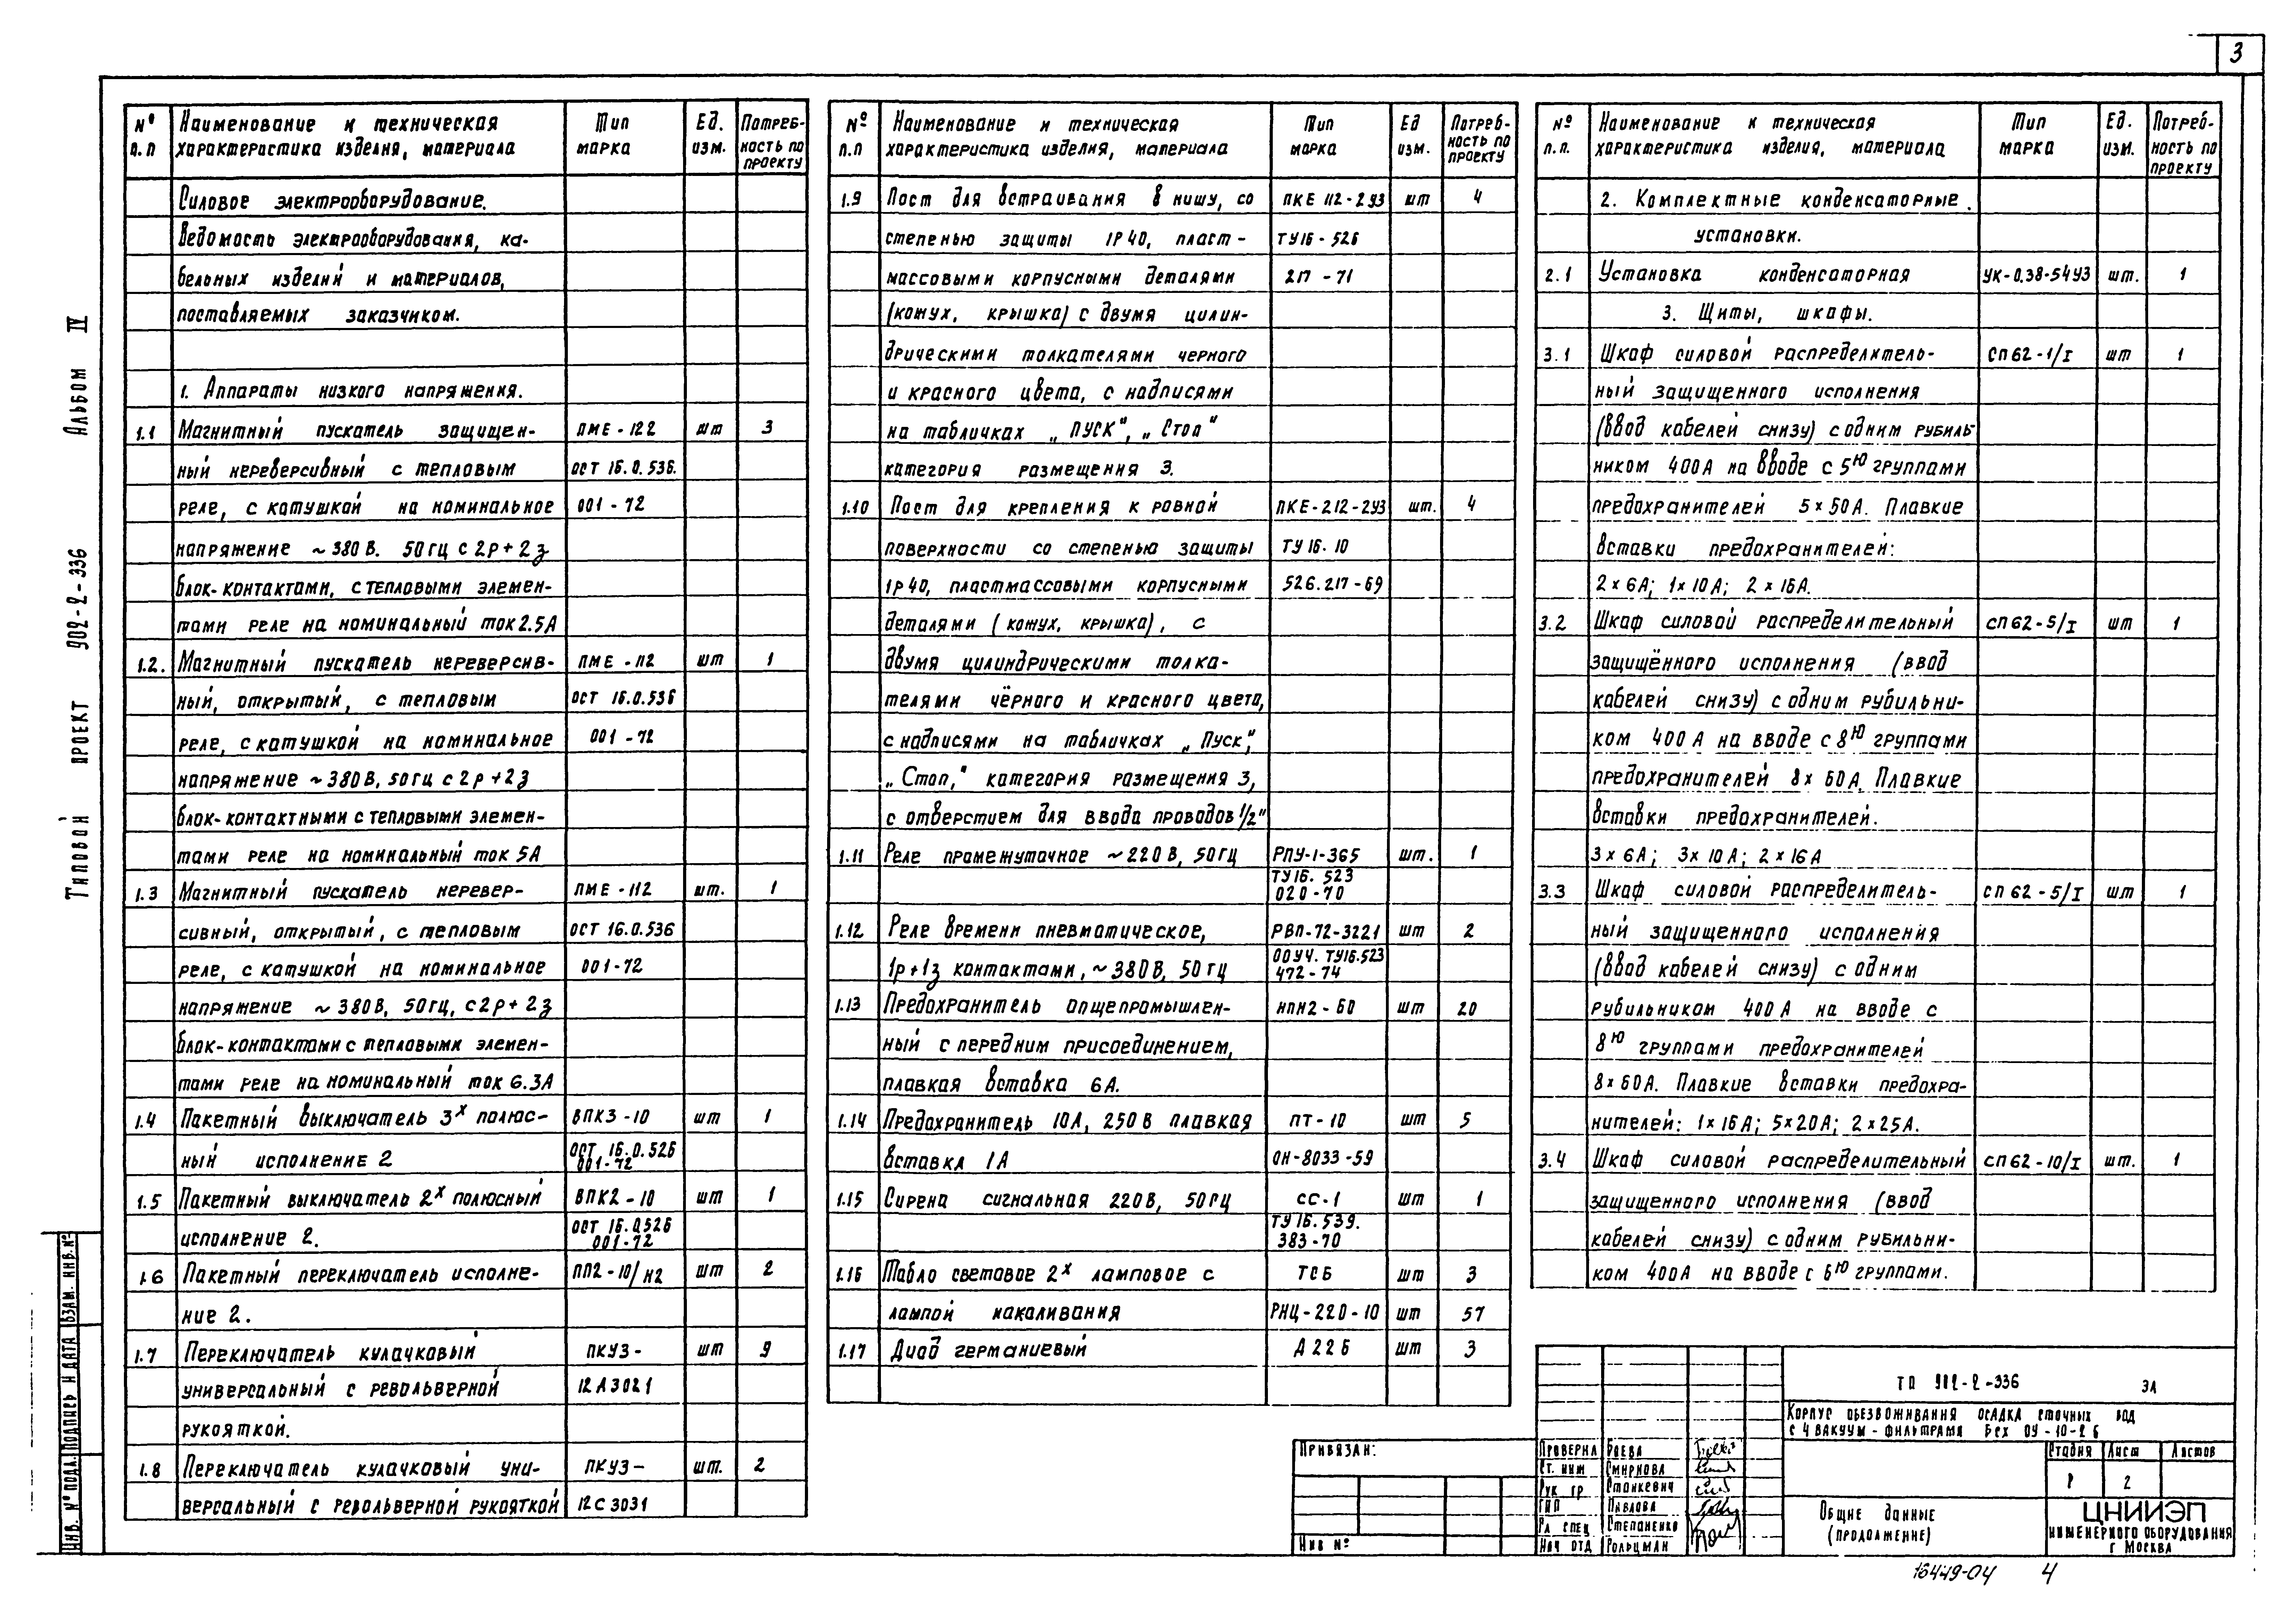 3
Типовой проект 902-2-336 Альбом IV
№ п.п Наименование и техническая характеристика изделия, материала Тип марка Ед. изм. Потребность по проекту
Силовое электрооборудование.
Ведомость электрооборудования, ка-
бельных изделий и материалов,
поставляемых заказчиком.
1. Аппараты низкого напряжения.
1.1 Магнитный пускатель защищен- ПМЕ-122 шт 3
ный нереверсивный с тепловым ОСТ 16.0.536.
реле, с катушкой на номинальное 001-72
напряжение ~380 В. 50 гц с 2р+2з
блок-контактами, с тепловыми элемен-
тами реле на номинальный ток 2.5А
1.2. Магнитный пускатель нереверсив- ПМЕ-112 шт 1
ный, открытый, с тепловым ОСТ 16.0.536
реле, с катушкой на номинальное 001-72
напряжение ~380 В, 50 гц с 2р+2з
блок-контактными с тепловыми элемен-
тами реле на номинальный ток 5А
1.3 Магнитный пускатель неревер- ПМЕ-112 шт. 1
сивный, открытый, с тепловым ОСТ 16.0.536
реле, с катушкой на номинальное 001-72
напряжение ~380 В, 50 гц, с 2р+2з
блок-контактами с тепловыми элемен-
тами реле на номинальный ток 6.3А
1.4 Пакетный выключатель 3х полюс- ВПК3-10 шт 1
ный исполнение 2 ОСТ 16.0.526 001-72
1.5 Пакетный выключатель 2х полюсный ВПК2-10 шт 1
исполнение 2. ОСТ 16.0.526 001-72
1.6 Пакетный переключатель исполне- ПП2-10/н2 шт 2
ние 2.
1.7 Переключатель кулачковый ПКУ3- шт 9
универсальный с револьверной 12А3021
рукояткой.
1.8 Переключатель кулачковый уни- ПКУ3- шт. 2
версальный с револьверной рукояткой 12С3031
№ п.п Наименование и техническая характеристика изделия, материала Тип марка Ед изм. Потребность по проекту
1.9 Пост для встраивания в нишу, со ПКЕ 112-2У3 шт 4
степенью защиты IР40, пласт- ТУ16-526
массовыми корпусными деталями 217-71
(кожух, крышка) с двумя цилин-
дрическими толкателями черного
и красного цвета, с надписями
на табличках „Пуск“, „Стоп“
категория размещения 3.
1.10 Пост для крепления к ровной ПКЕ-212-2У3 шт. 4
поверхности со степенью защиты ТУ16.10
IР40, пластмассовыми корпусными 526.217-69
деталями (кожух, крышка), с
двумя цилиндрическими толка-
телями чёрного и красного цвета,
с надписями на табличках „Пуск“,
„Стоп,“ категория размещения 3,
с отверстием для ввода проводов 1/2"
1.11 Реле промежуточное ~220 В, 50 гц РПУ-1-365 шт. 1
ТУ16.523 020-70
1.12 Реле времени пневматическое, РВП-72-3221 шт 2
1р+1з контактами, ~380В, 50 гц 00УЧ. ТУ16.523 472-74
1.13 Предохранитель опщепромышлен- НПН2-60 шт 20
ный с передним присоединением,
плавкая вставка 6А.
1.14 Предохранитель 10А, 250В плавкая ПТ-10 шт 5
вставка 1А ОН-8033-59
1.15 Сирена сигнальная 220В, 50 гц СС-1 шт 1
ТУ16.539. 383-70
1.16 Табло световое 2х ламповое с ТСБ шт 3
лампой накаливания РНЦ-220-10 шт 57
1.17 Диод германиевый Д22Б шт 3
№ п.п. Наименование и техническая характеристика изделия, материала Тип марка Ед. изм. Потребность по проекту
2. Комплектные конденсаторные.
установки.
2.1 Установка конденсаторная УК-0.38-54У3 шт. 1
3. Щиты, шкафы.
3.1 Шкаф силовой распределитель- СП62-1/I шт 1
ный защищенного исполнения
(ввод кабелей снизу) с одним рубиль-
ником 400А на вводе с 5ю группами
предохранителей 5×50А. Плавкие
вставки предохранителей:
2×6А; 1×10А; 2×16А.
3.2 Шкаф силовой распределительный СП62-5/I шт 1
защищённого исполнения (ввод
кабелей снизу) с одним рубильни-
ком 400А на вводе с 8ю группами
предохранителей 8×60А. Плавкие
вставки предохранителей.
3×6А; 3×10А; 2×16А
3.3 Шкаф силовой распределитель- СП62-5/I шт 1
ный защищенного исполнения
(ввод кабелей снизу) с одним
рубильником 400А на вводе с
8ю группами предохранителей
8×60А. Плавкие вставки предохра-
нителей: 1×16А; 5×20А; 2×25А.
3.4 Шкаф силовой распределительный СП62-10/I шт. 1
защищенного исполнения (ввод
кабелей снизу) с одним рубильни-
ком 400А на вводе с 6ю группами.
Инв. № подл. Подпись и дата Взам. инв. №
Привязан:
Инв №
Проверил Баева
Ст. инж Смирнова
Рук гр Станкевич
ГИП Павлова
Гл спец Степаненко
Нач отд Гольцман
ТП 902-2-336 ЭЛ
Корпус обезвоживания осадка сточных вод
с 4 вакуум-фильтрами Бсх ОУ-10-2 6
Стадия Лист Листов
Р 2
Общие данные
(продолжение)
ЦНИИЭП
инженерного оборудования
г Москва
16449-04 4